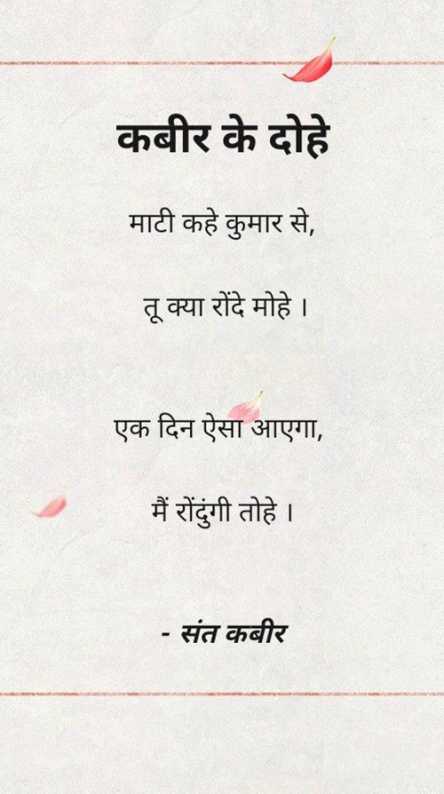 कबीर के दोहे
माटी कहे कुमार से,
तू क्या रोंदे मोहे ।
एक दिन ऐसा आएगा,
मैं रोंदुंगी तोहे ।
- संत कबीर